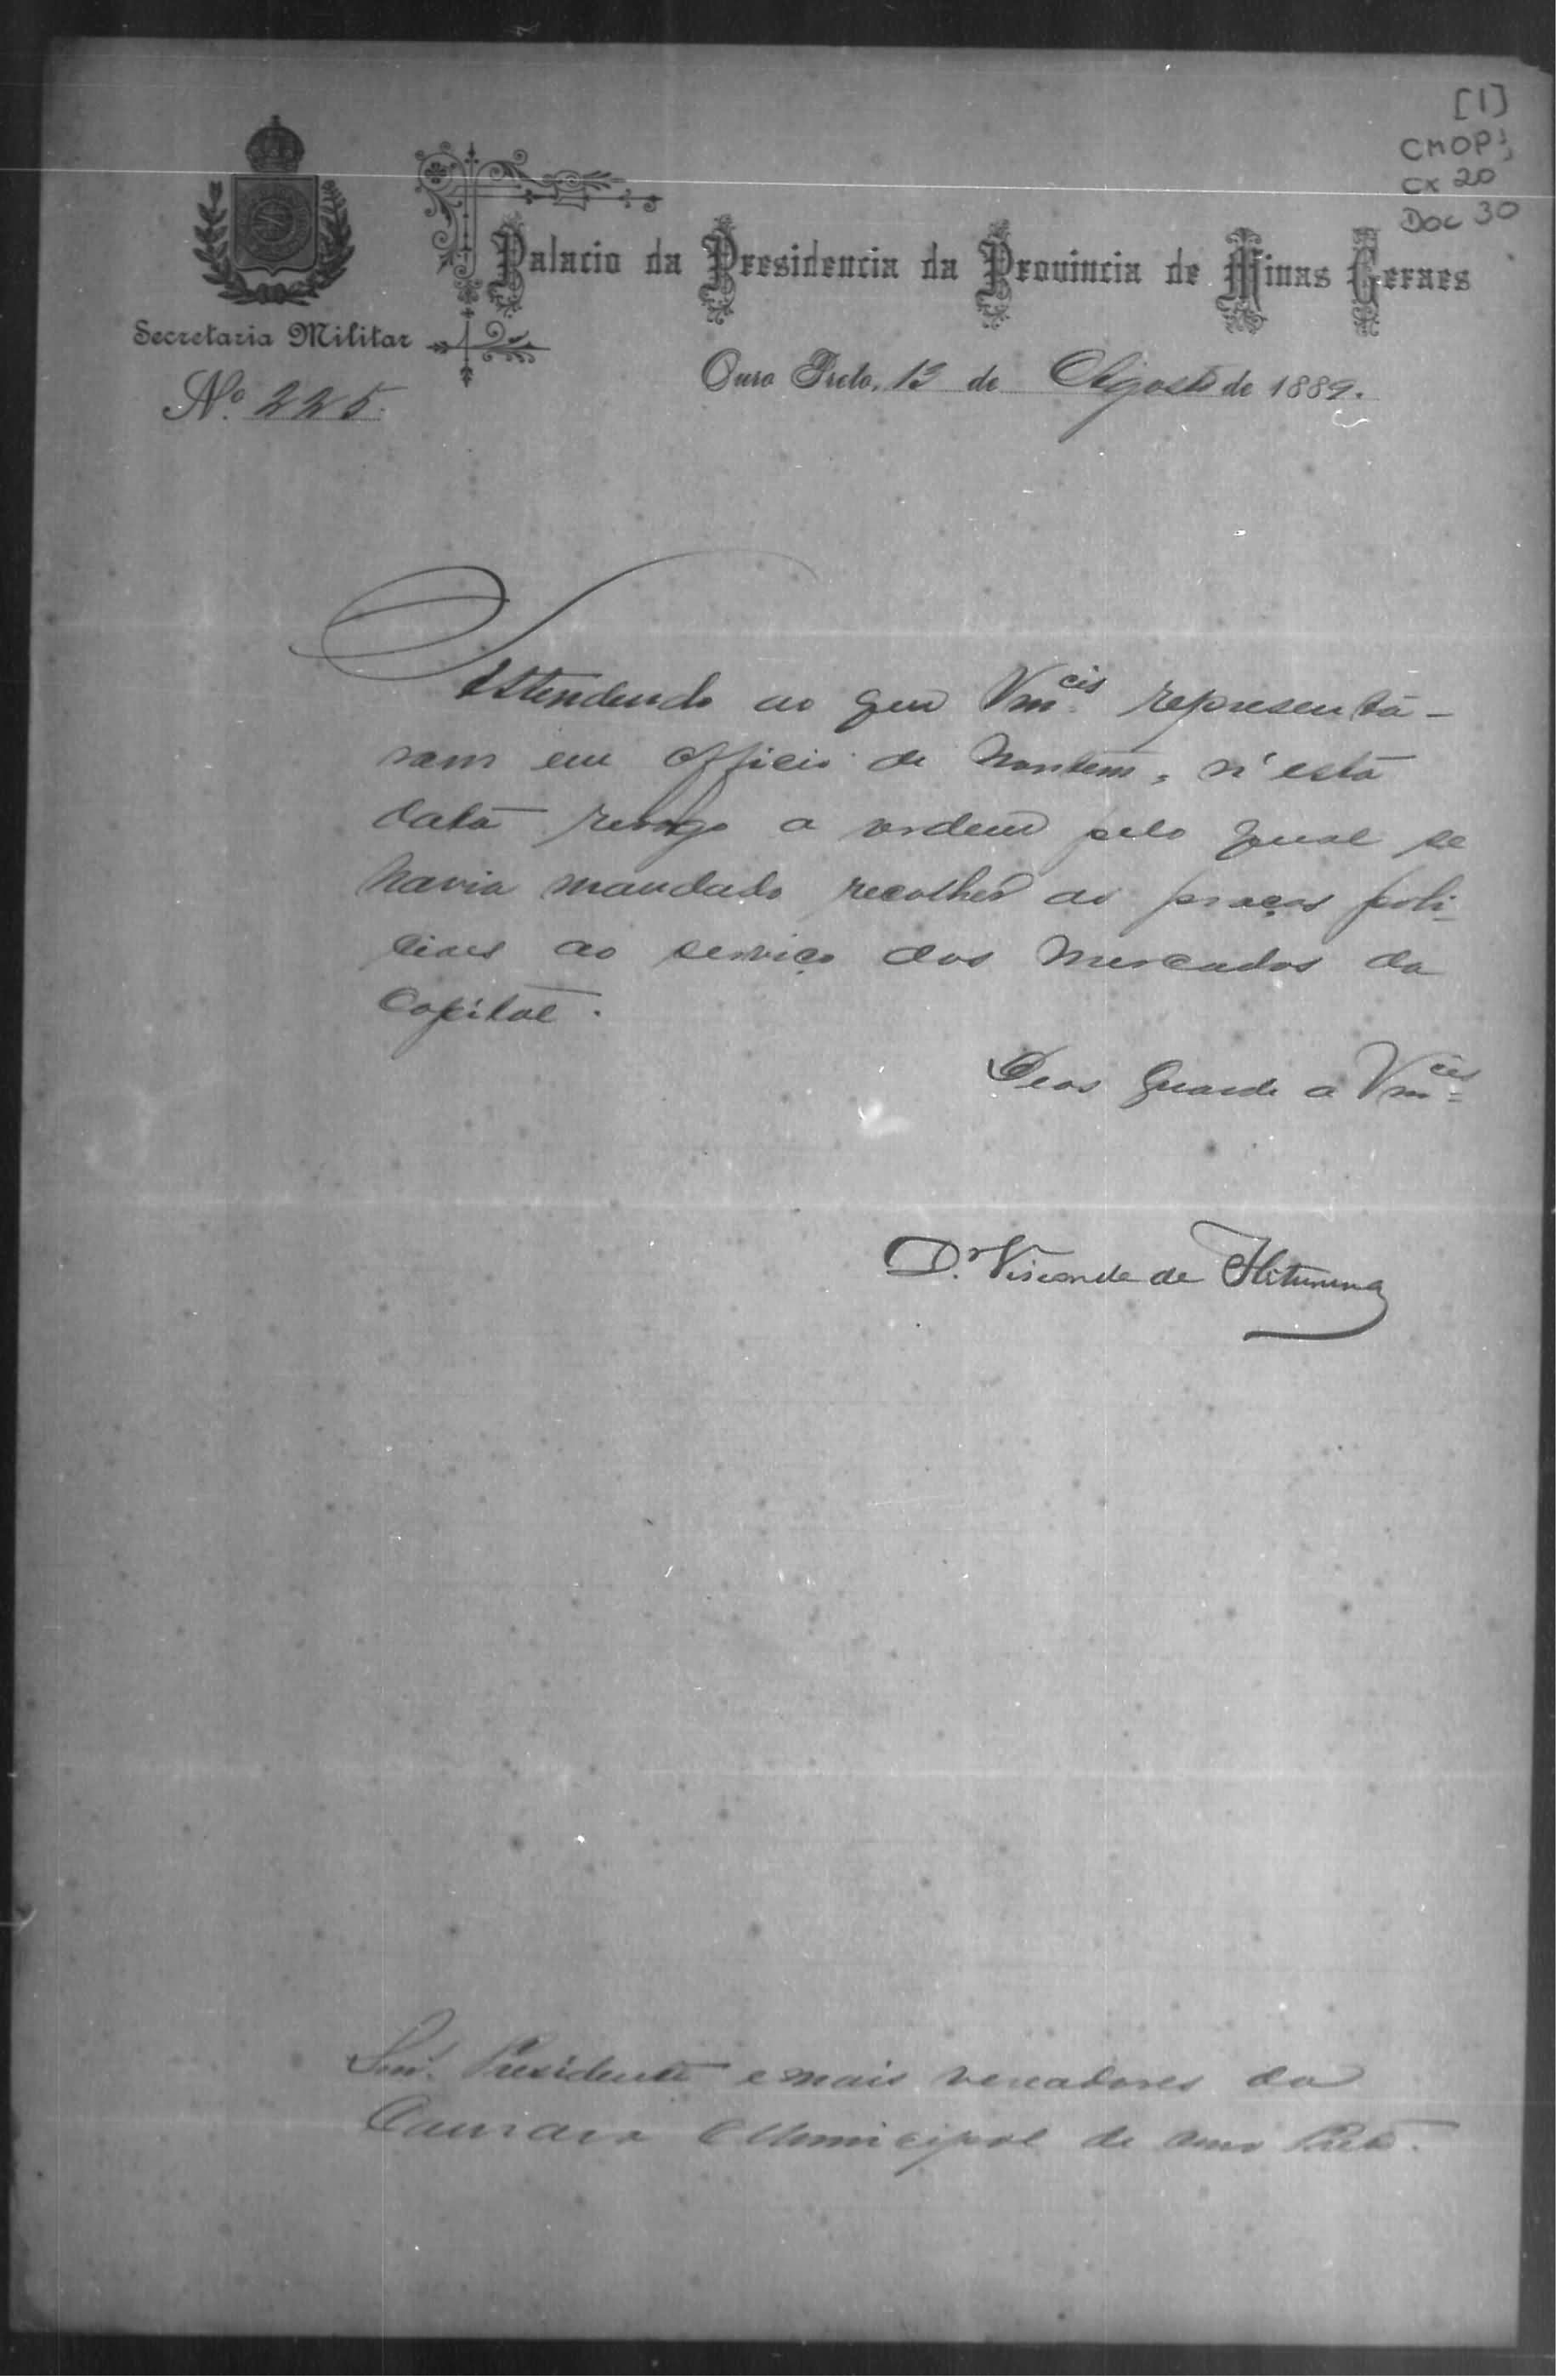 [1]
CMOP;
CX 20
Doc 30
Palacio da Presidencia da Provincia de Minas Geraes
Secretaria Militar
Nº 225.
Ouro Preto, 13 de Agosto de 1889.
Attendendo ao que Vmcês representá-
ram em officio de hontem, n'esta
data revogo a ordem pela qual se
havia mandado recolher as praças poli-
ciaes ao serviço dos mercados da
Capital.
Deos Guarde a Vmcês
Dr. Visconde de Ibituruna
Snr. Presidente e mais vereadores da
Camara Municipal de Ouro Preto.